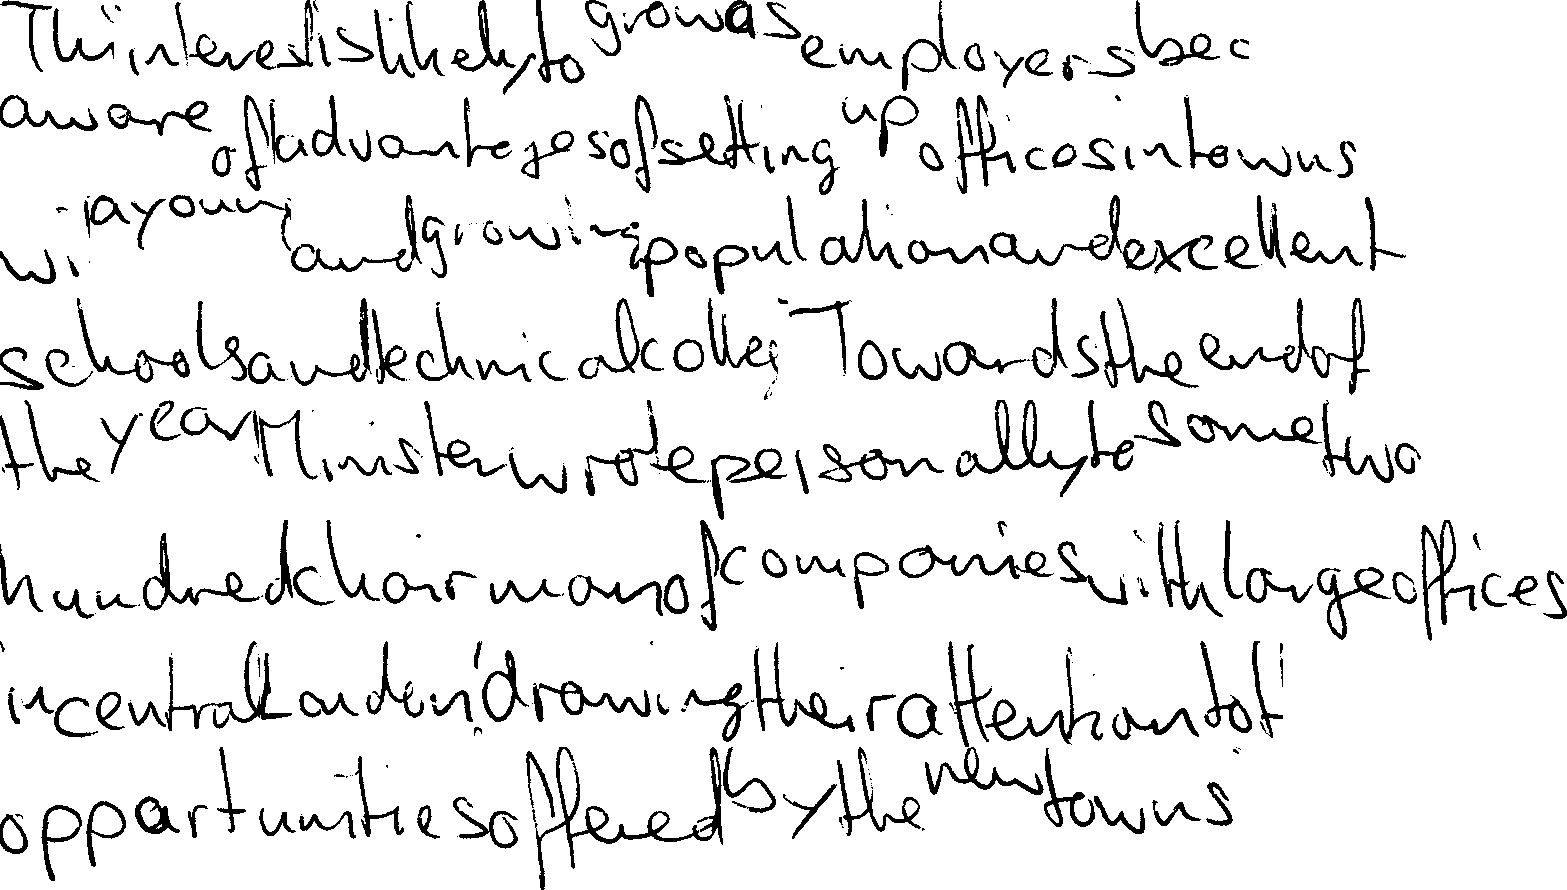 This interest is likely to grow as employers bec
aware of advantages of setting up offices in towns
wi a young and growing population and excellent
schools and technical colleg Towards the end of
the year Minister wrote personally to some two
hundred chairman of companies with large offices
in central London drawing their attention to t
opportunities offered by the new towns